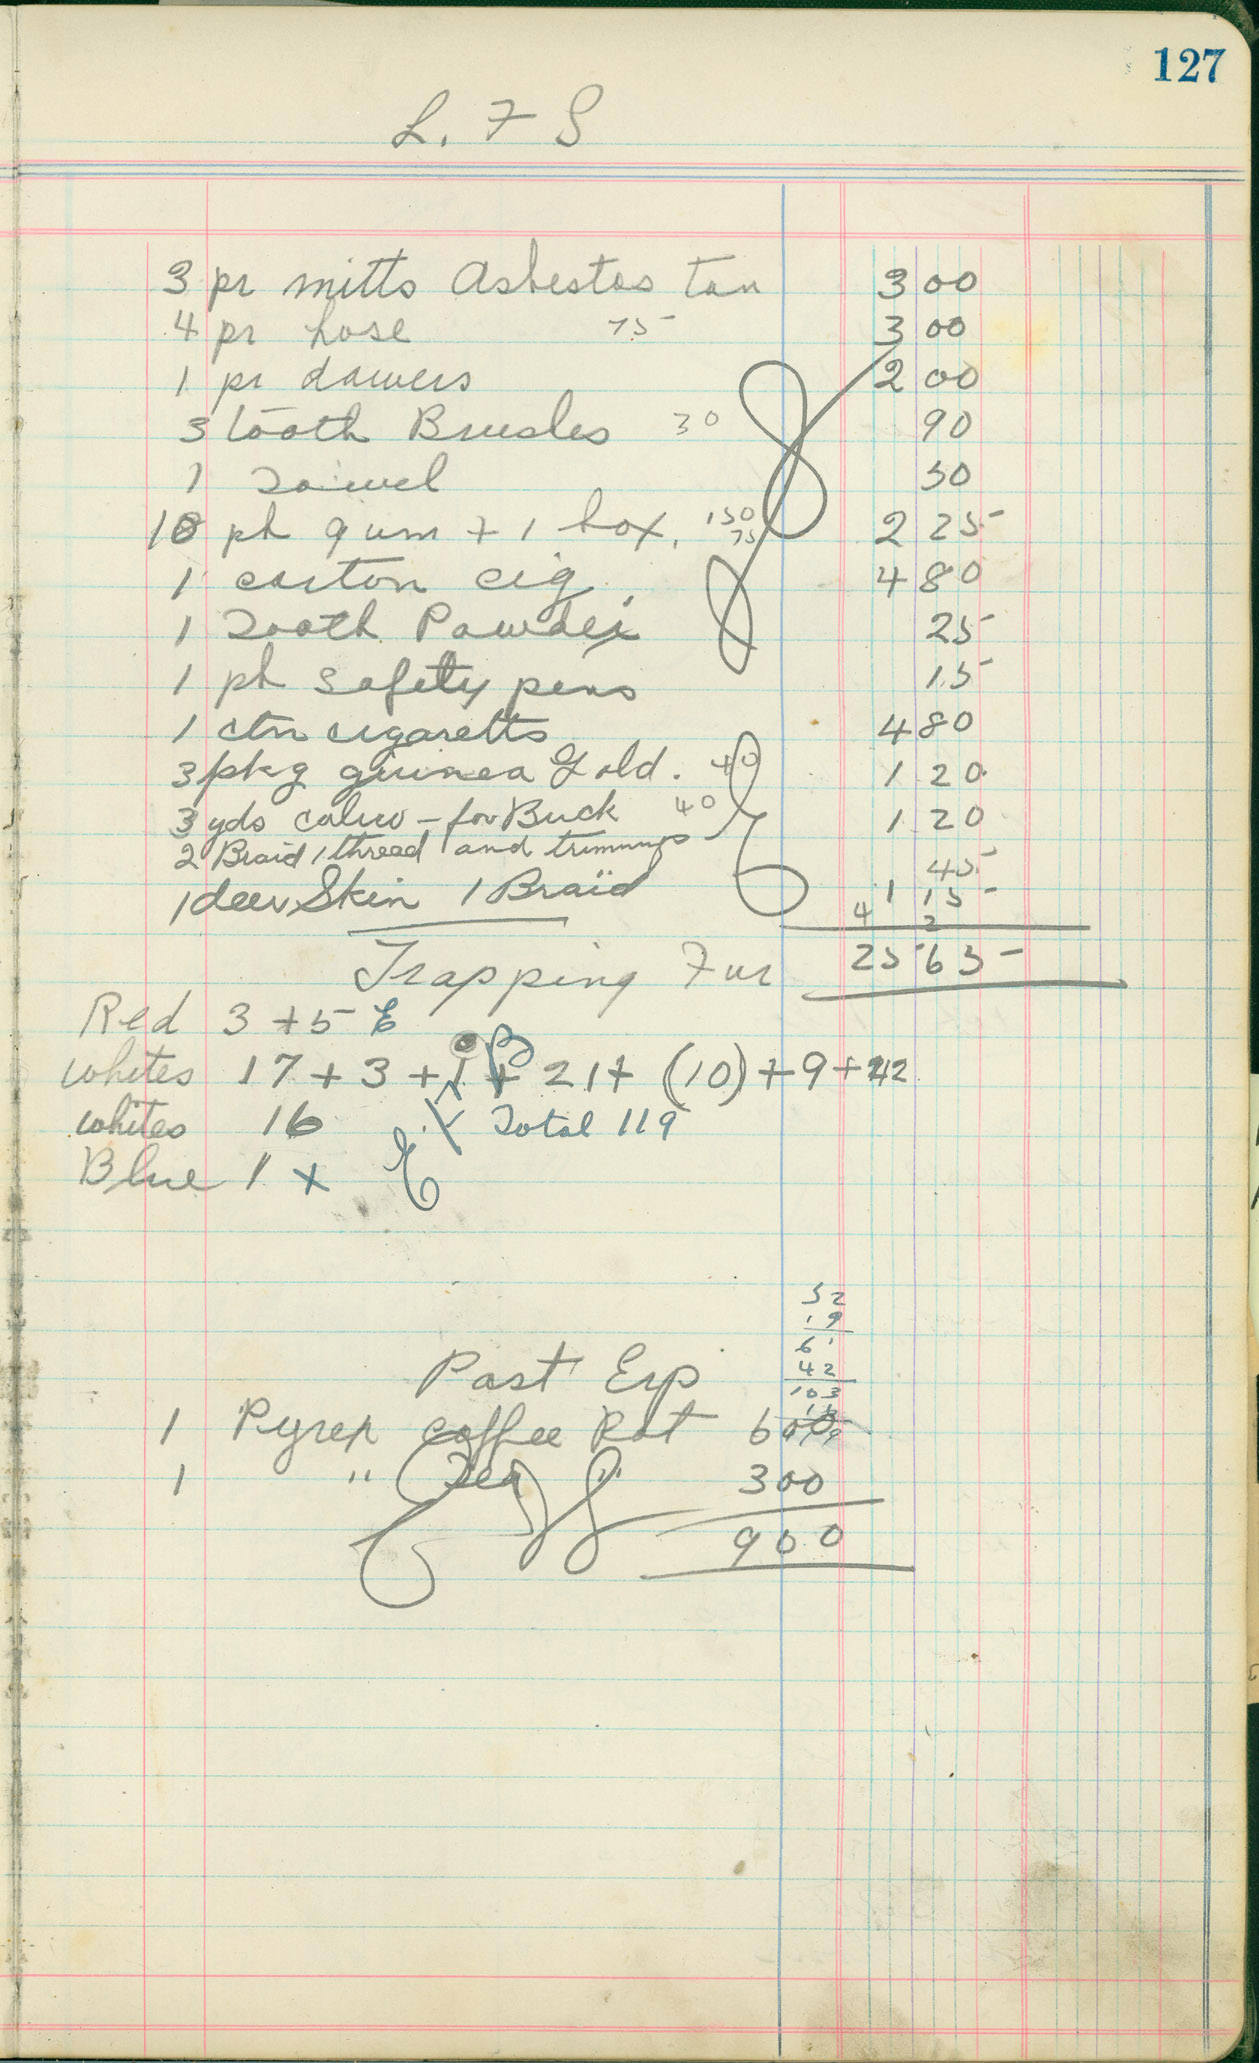 127
L. F S
3 pr mitts Asbestos tan 3 00
4 pr hose 75 3 00
1 pr dawers 2 00
3 tooth Brusles 30 90
1 50
10 pk gum + 1 box. 150 75 2 25
1 carton cig. 4 80
1 Tooth Powder 25
1 pk safety pens 15
1 ctn cigaretts 4 80
3 pkg guinea Gold. 40 1 20
3 yds calico - for Buck 40 1 20
2 Braid 1 thread and trimmings 45
1 deer Skin 1 Braid 1 15
4 2
Trapping Fur 25 65
Red 3 + 5 E
whites 17 + 3 + 1 + 21 + (10) + 9 + 42
whites 16 Total 119
Blue 1 x E
52
9
61
42
103
16
119
Post Exp
1 Pyrex coffee Pot 6 00
1 " Tea " 3 00
9 00